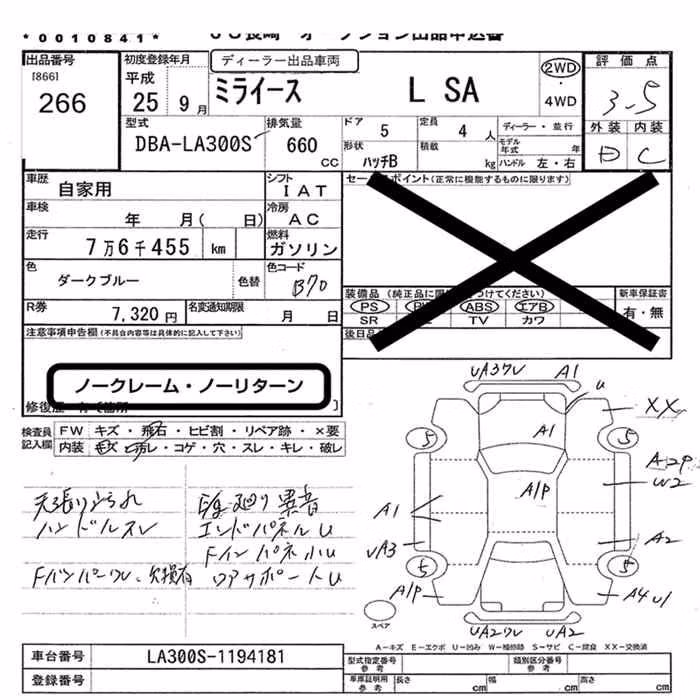 *0010841*
出品番号
[866]
266
初度登録年月
平成
25 9月
ディーラー出品車両
ミライース L SA
2WD
4WD
評価点
3-5
外装 内装
D C
型式
DBA-LA300S
排気量
660
CC
ドア 5
定員 4 人
ディーラー・並行
形状 ハッチB
積載 kg
モデル年式 年
ハンドル 左・右
車歴
自家用
シフト
I AT
車検
年 月( 日)
冷房
A C
走行
7万6千455 km
燃料
ガソリン
色
ダークブルー
色替
色コード
B70
R券
7,320円
名変通知期限
月 日
セールスポイント(正常に機能するものに限ります)
装備品
PS ABS エアB
SR TV カワ
新車保証書
有・無
後日品
注意事項申告欄(不具合内容等は具体的に記入して下さい)
ノークレーム・ノーリターン
修復歴
検査員
記入欄
FW キズ・飛石・ヒビ割・リペア跡・×要
内装 キズ・汚レ・コゲ・穴・スレ・キレ・破レ
ハンドルスレ
異音
エンドパネルU
Fインパネ小U
リアサポートU
UA3ワレ A1
U
XX
5 5
A1
A1P
A2P
W2
A1
UA3
A2
5 5
A1P
A4 U1
UA2ワレ UA2
スペア
A-キズ E-エクボ U-凹み W-補修跡 S-サビ C-腐食 XX-交換済
車台番号
LA300S-1194181
登録番号
型式指定番号
参考
類別区分番号
参考
車庫証明用
参考
長さ cm
幅 cm
高さ cm